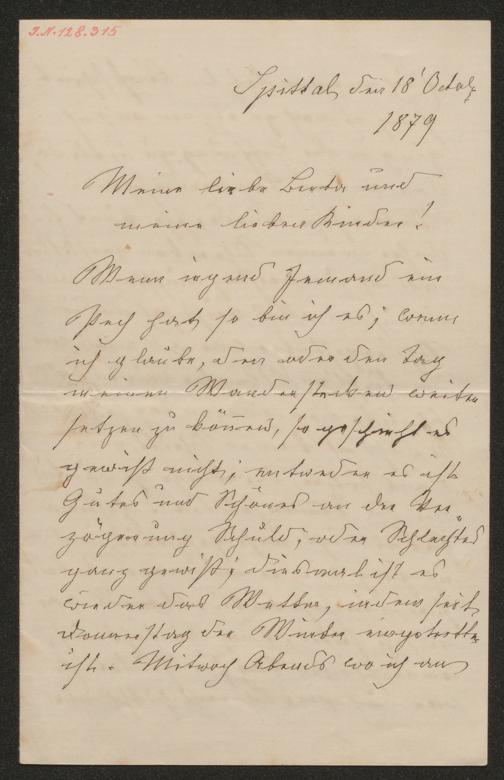 J.N. 128.315
Spittal den 18' Octob.
1879
Meine liebe Berta und
meine lieben Kinder!
Wenn irgend Jemand ein
Pech hat, so bin ich es; wenn
ich glaube, den oder den Tag
meinen Wanderstecken weiter
setzen zu können, so geschieht es
gewiß nicht; entweder es ist
Gutes und Schönes an der Ver-
zögerung Schuld, oder Schlechtes
ganz gewiß; diesmal ist es
wieder das Wetter, indem seit
Donnerstag der Winter eingetretten
ist. Mitwoch Abends wo ich an